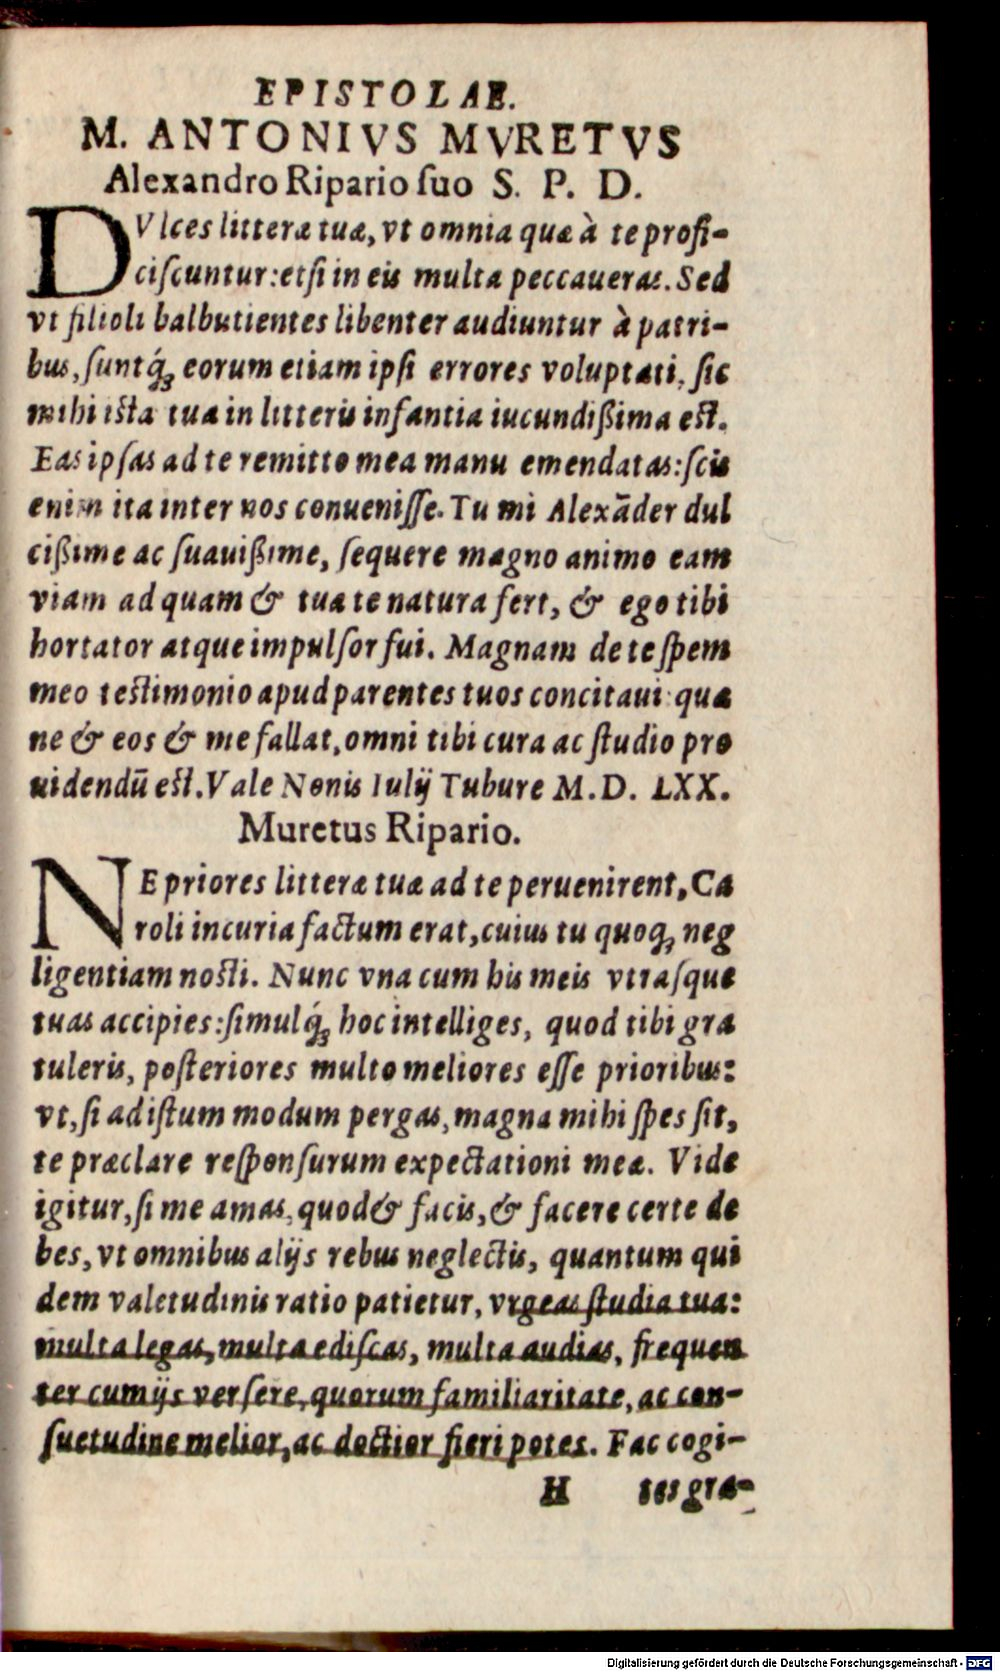 EPISTOLAE.
M. ANTONIVS MVRETVS
Alexandro Ripario ſuo S. P. D.
DVlces litteræ tuæ, vt omnia quæ à te profi-
ciſcuntur: etſi in eis multa peccaueras. Sed
vt filioli balbutientes libenter audiuntur à patri-
bus, ſuntq́ꝫ eorum etiam ipſi errores voluptati, ſic
mihi iſta tua in litteris infantia iucundißima eſt.
Eas ipſas ad te remitto mea manu emendatas: ſcis
enim ita inter nos conueniſſe. Tu mi Alexāder dul
cißime ac ſuauißime, ſequere magno animo eam
viam ad quam & tua te natura fert, & ego tibi
hortator atque impulſor fui. Magnam de te ſpem
meo teſtimonio apud parentes tuos concitaui: quæ
ne & eos & me fallat, omni tibi cura ac ſtudio pro
uidendū eſt. Vale Nonis Iulij Tubure M.D. LXX.
Muretus Ripario.
NE priores litteræ tuæ ad te peruenirent, Ca
roli incuria factum erat, cuius tu quoqꝫ neg
ligentiam noſti. Nunc vna cum his meis vtraſque
tuas accipies: ſimulq́ꝫ hoc intelliges, quod tibi gra
tuleris, poſteriores multo meliores eſſe prioribus:
vt, ſi ad iſtum modum pergas, magna mihi ſpes ſit,
te præclare reſponſurum expectationi meæ. Vide
igitur, ſi me amas, quod & facis, & facere certe de
bes, vt omnibus alijs rebus neglectis, quantum qui
dem valetudinis ratio patietur, vrgeas ſtudia tua:
multa legas, multa ediſcas, multa audias, frequen
ter cum ijs verſere, quorum familiaritate, ac con-
ſuetudine melior, ac doctior fieri potes. Fac cogi-
H tes gra-
Digitalisierung gefördert durch die Deutsche Forschungsgemeinschaft - DFG